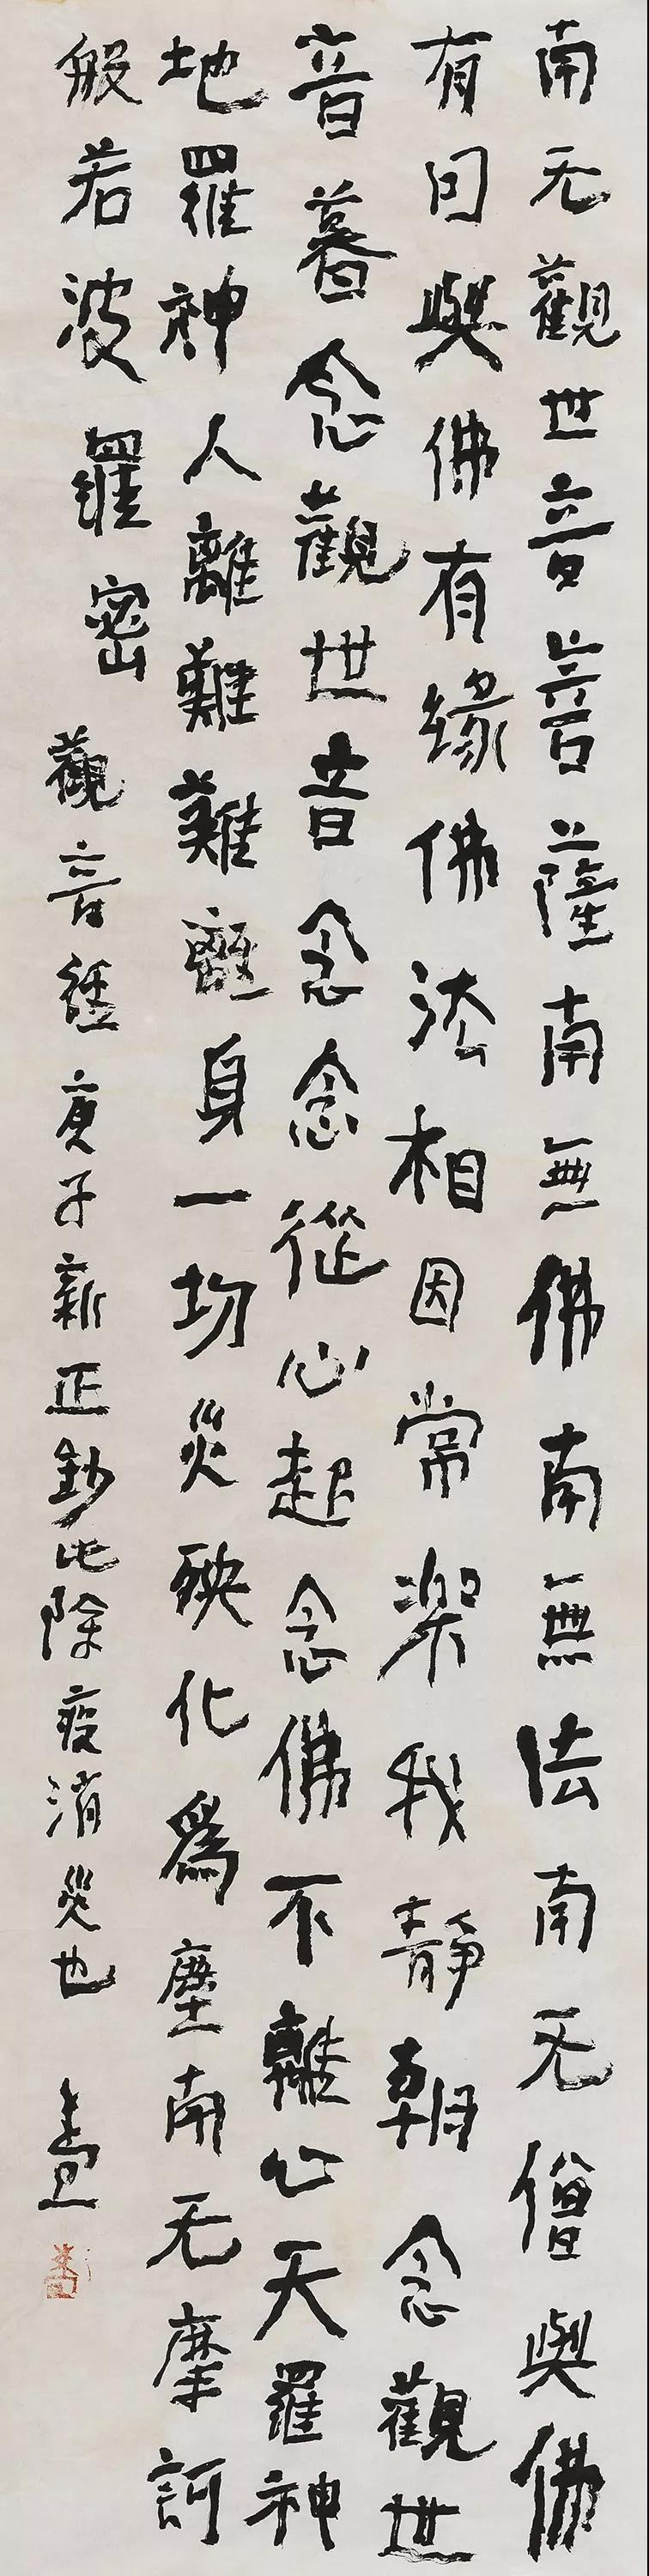 南无觀世音菩薩南無佛南無法南无僧與佛
有因與佛有緣佛法相因常樂我靜朝念觀世
音暮念觀世音念念從心起念佛不離心天羅神
地羅神人離難難離身一切災殃化為塵南无摩訶
般若波羅密 觀音經庚子新正鈔此除疫消災也